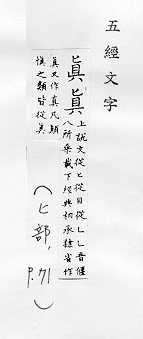 五經文字
眞眞 上說文從匕從目從乚乚音偃
八所乗載下經典相承隸省作
真又作真凡顛
愼之類皆從眞
(匕部, P.71)